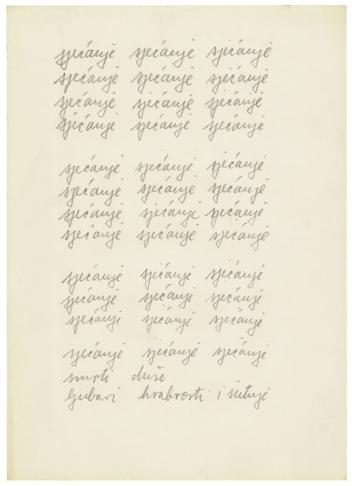 sjećanje sjećanje sjećanje
sjećanje sjećanje sjećanje
sjećanje sjećanje sjećanje
sjećanje sjećanje sjećanje
sjećanje sjećanje sjećanje
sjećanje sjećanje sjećanje
sjećanje sjećanje sjećanje
sjećanje sjećanje sjećanje
sjećanje sjećanje sjećanje
sjećanje sjećanje sjećanje
sjećanje sjećanje sjećanje
sjećanje sjećanje sjećanje
smrti duše
ljubavi hrabrosti i